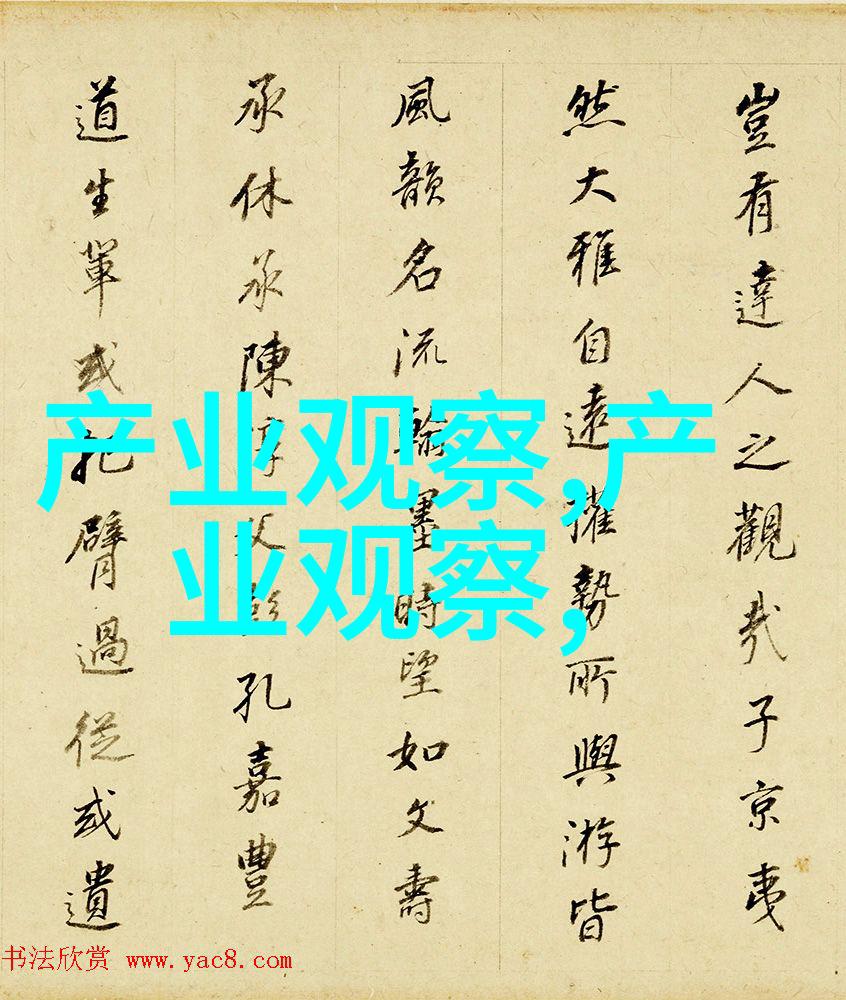 豈有達人之觀哉子京夷
然大雅自遠攉勢所與游皆
風韻名流翰墨時望如文壽
承休承陳淳父彭孔嘉豊
道生輩或把臂過從或遺
产业观察,产
业观察,
书法欣赏 www.yac8.com